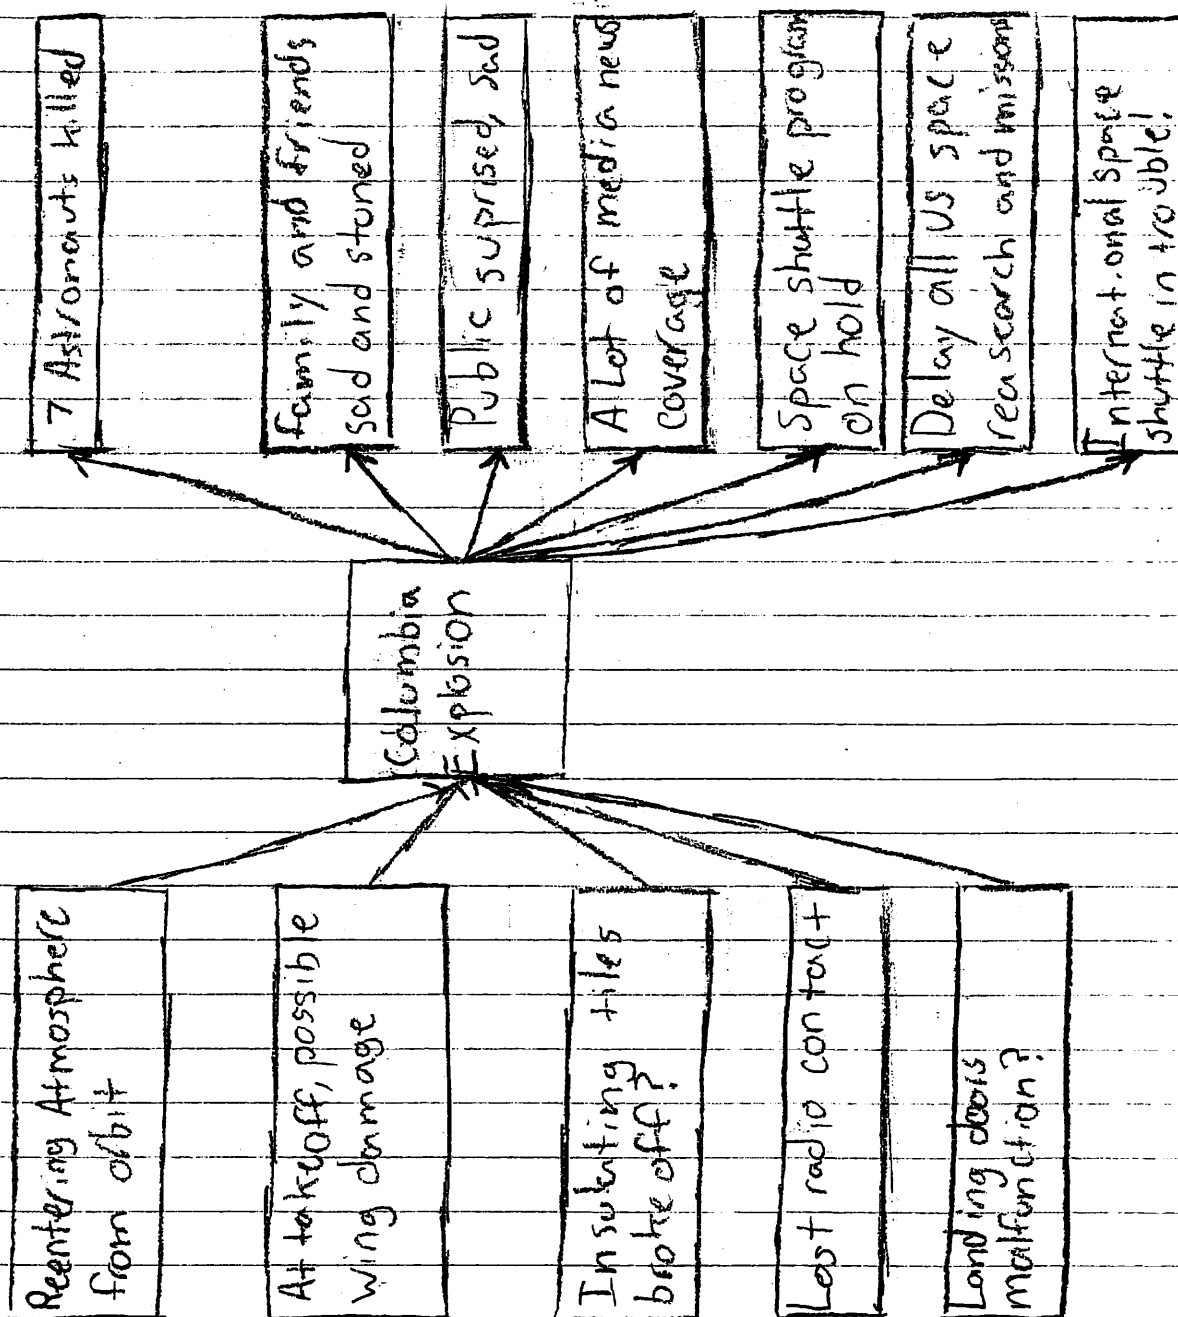 Reentering Atmosphere
from orbit
At takeoff, possible
wing damage
Insulating tiles
broke off?
Lost radio contact
Landing doors
malfunction?
Columbia
Explosion
7 Astronauts killed
family and friends
sad and stuned
Public suprised, sad
A Lot of media news
coverage
Space shuttle program
on hold
Delay all US space
reasearch and missons
International space
shuttle in trouble!